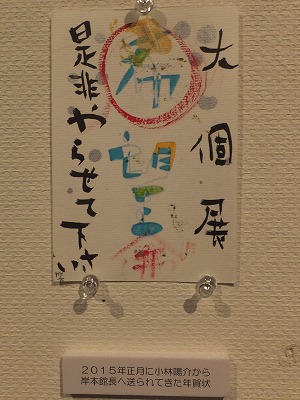 大個展
是非やらせて下さい
2015年正月に小林陽介から
岸本館長へ送られてきた年賀状